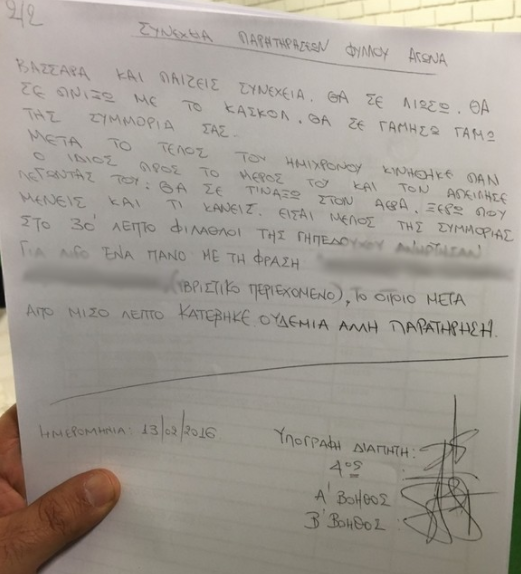 2/2
ΣΥΝΕΧΕΙΑ ΠΑΡΗΤΗΡΑΣΕΩΝ ΦΥΛΛΟΥ ΑΓΩΝΑ
ΒΑΣΣΑΡΑ ΚΑΙ ΠΑΙΖΕΙΣ ΣΥΝΕΧΕΙΑ. ΘΑ ΣΕ ΛΙΩΣΩ. ΘΑ
ΣΕ ΠΝΙΞΩ ΜΕ ΤΟ ΚΑΣΚΟΛ. ΘΑ ΣΕ ΓΑΜΗΣΩ ΓΑΜΩ
ΤΗΣ ΣΥΜΜΟΡΙΑ ΣΑΣ.
ΜΕΤΑ ΤΟ ΤΕΛΟΣ ΤΟΥ ΗΜΙΧΡΟΝΟΥ ΚΙΝΗΘΗΚΕ ΠΑΛΙ
Ο ΙΔΙΟΣ ΠΡΟΣ ΤΟ ΜΕΡΟΣ ΤΟΥ ΚΑΙ ΤΟΝ ΑΠΕΙΛΗΣΕ
ΛΕΓΩΝΤΑΣ ΤΟΥ: ΘΑ ΣΕ ΤΙΝΑΞΩ ΣΤΟΝ ΑΕΡΑ. ΞΕΡΩ ΠΟΥ
ΜΕΝΕΙΣ ΚΑΙ ΤΙ ΚΑΝΕΙΣ. ΕΙΣΑΙ ΜΕΛΟΣ ΤΗΣ ΣΥΜΜΟΡΙΑΣ
ΣΤΟ 30' ΛΕΠΤΟ ΦΙΛΑΘΛΟΙ ΤΗΣ ΓΗΠΕΔΟΥΧΟΥ ΑΝΗΡΤΗΣΑΝ
ΓΙΑ ΛΙΓΟ ΕΝΑ ΠΑΝΟ ΜΕ ΤΗ ΦΡΑΣΗ
(ΥΒΡΙΣΤΙΚΟ ΠΕΡΙΕΧΟΜΕΝΟ), ΤΟ ΟΠΟΙΟ ΜΕΤΑ
ΑΠΟ ΜΙΣΟ ΛΕΠΤΟ ΚΑΤΕΒΗΚΕ ΟΥΔΕΜΙΑ ΑΛΛΗ ΠΑΡΑΤΗΡΗΣΗ.
ΗΜΕΡΟΜΗΝΙΑ: 13/02/2016
ΥΠΟΓΡΑΦΗ ΔΙΑΙΤΗΤΗ:
4ος
Α' ΒΟΗΘΟΣ
Β' ΒΟΗΘΟΣ